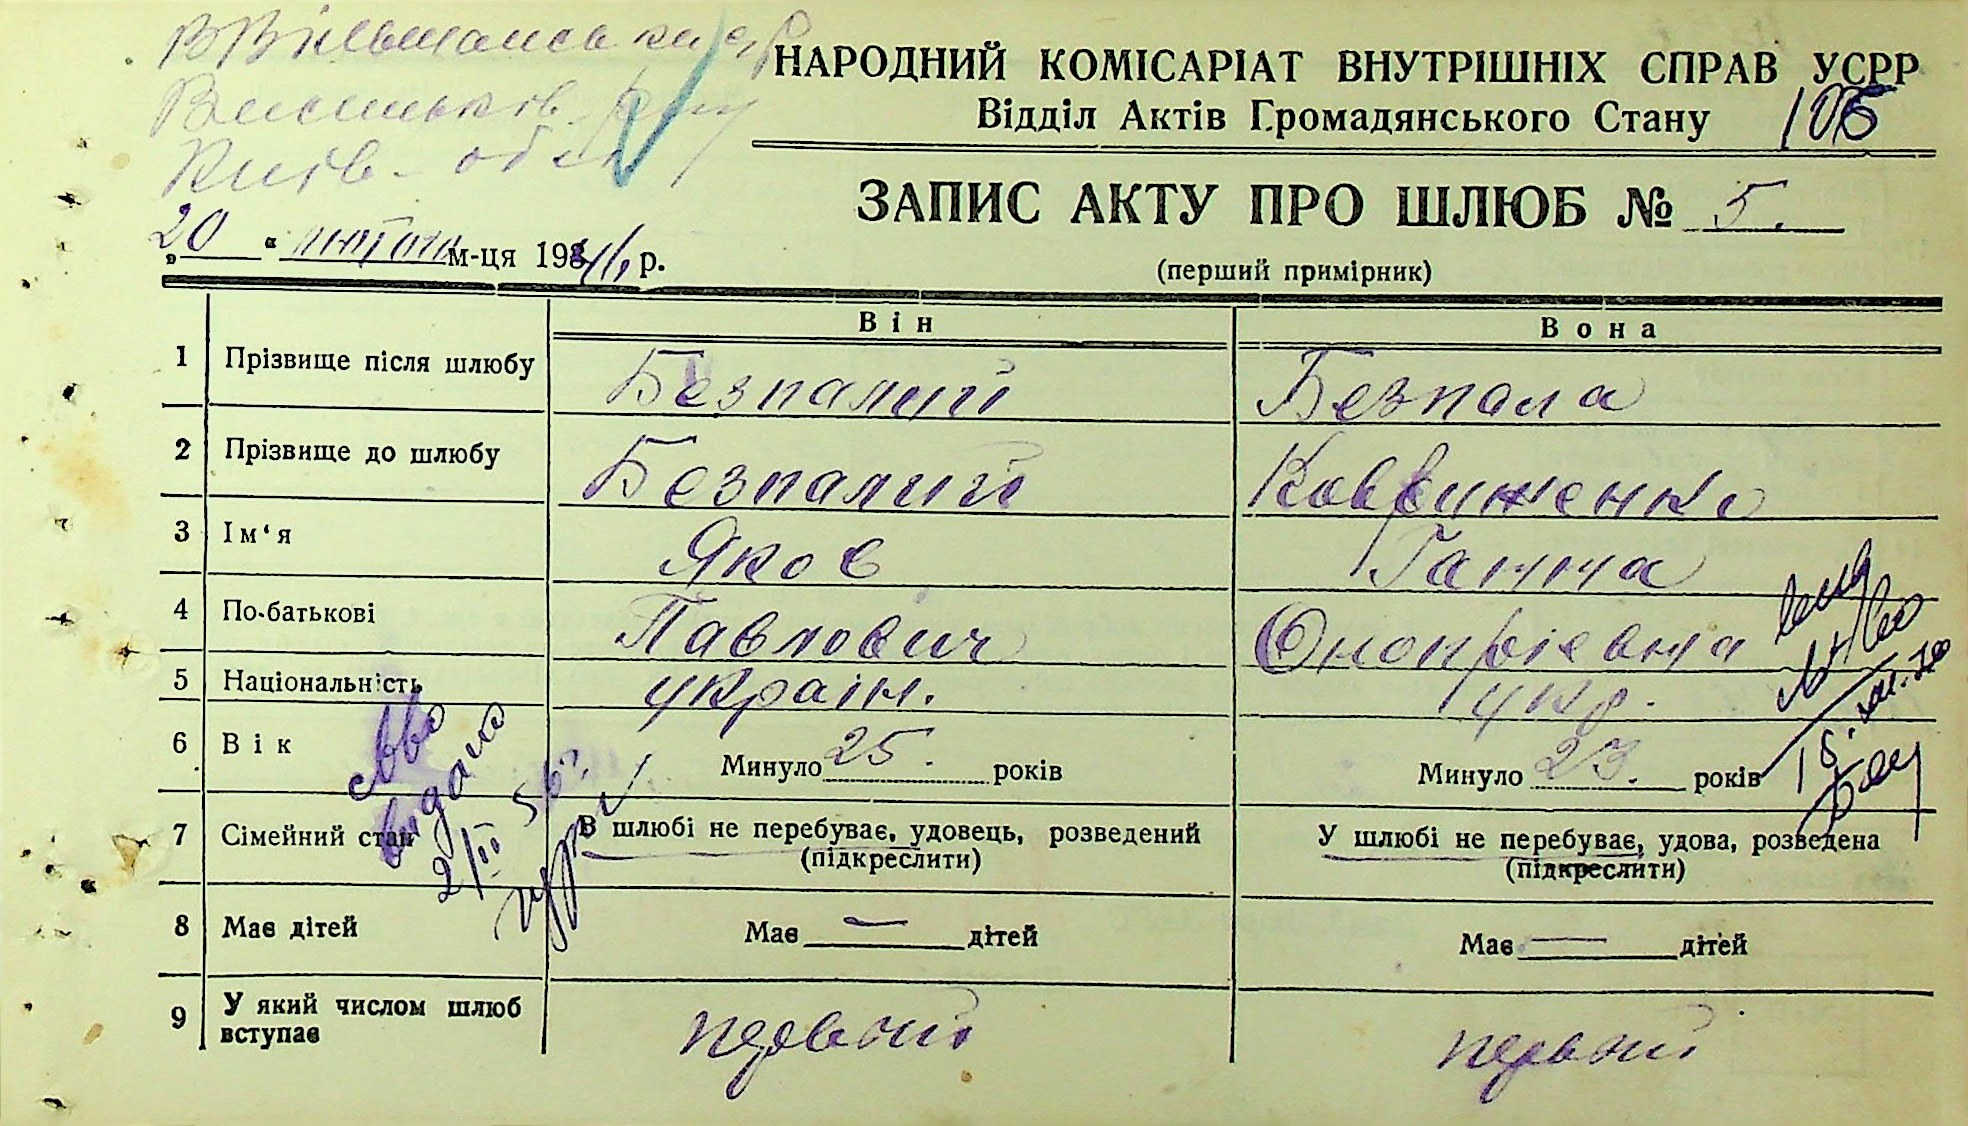 В Вільшанська с/р
Київ. обл
НАРОДНИЙ КОМІСАРІАТ ВНУТРІШНІХ СПРАВ УСРР
Відділ Актів Громадянського Стану
ЗАПИС АКТУ ПРО ШЛЮБ № 5.
„20“ лютого м-ця 193 р.
(перший примірник)
Він
Вона
1 Прізвище після шлюбу Безпалий Безпала
2 Прізвище до шлюбу Безпалий
3 Ім‘я Яков Ганна
4 По-батькові Павлович Онопрієвна
5 Національність україн. укр.
6 Вік Минуло 25. років Минуло 23. років
видано
7 Сімейний стан В шлюбі не перебуває, удовець, розведений У шлюбі не перебуває, удова, розведена
(підкреслити) (підкреслити)
8 Має дітей Має — дітей Має — дітей
9 У який числом шлюб
вступає
первий первий